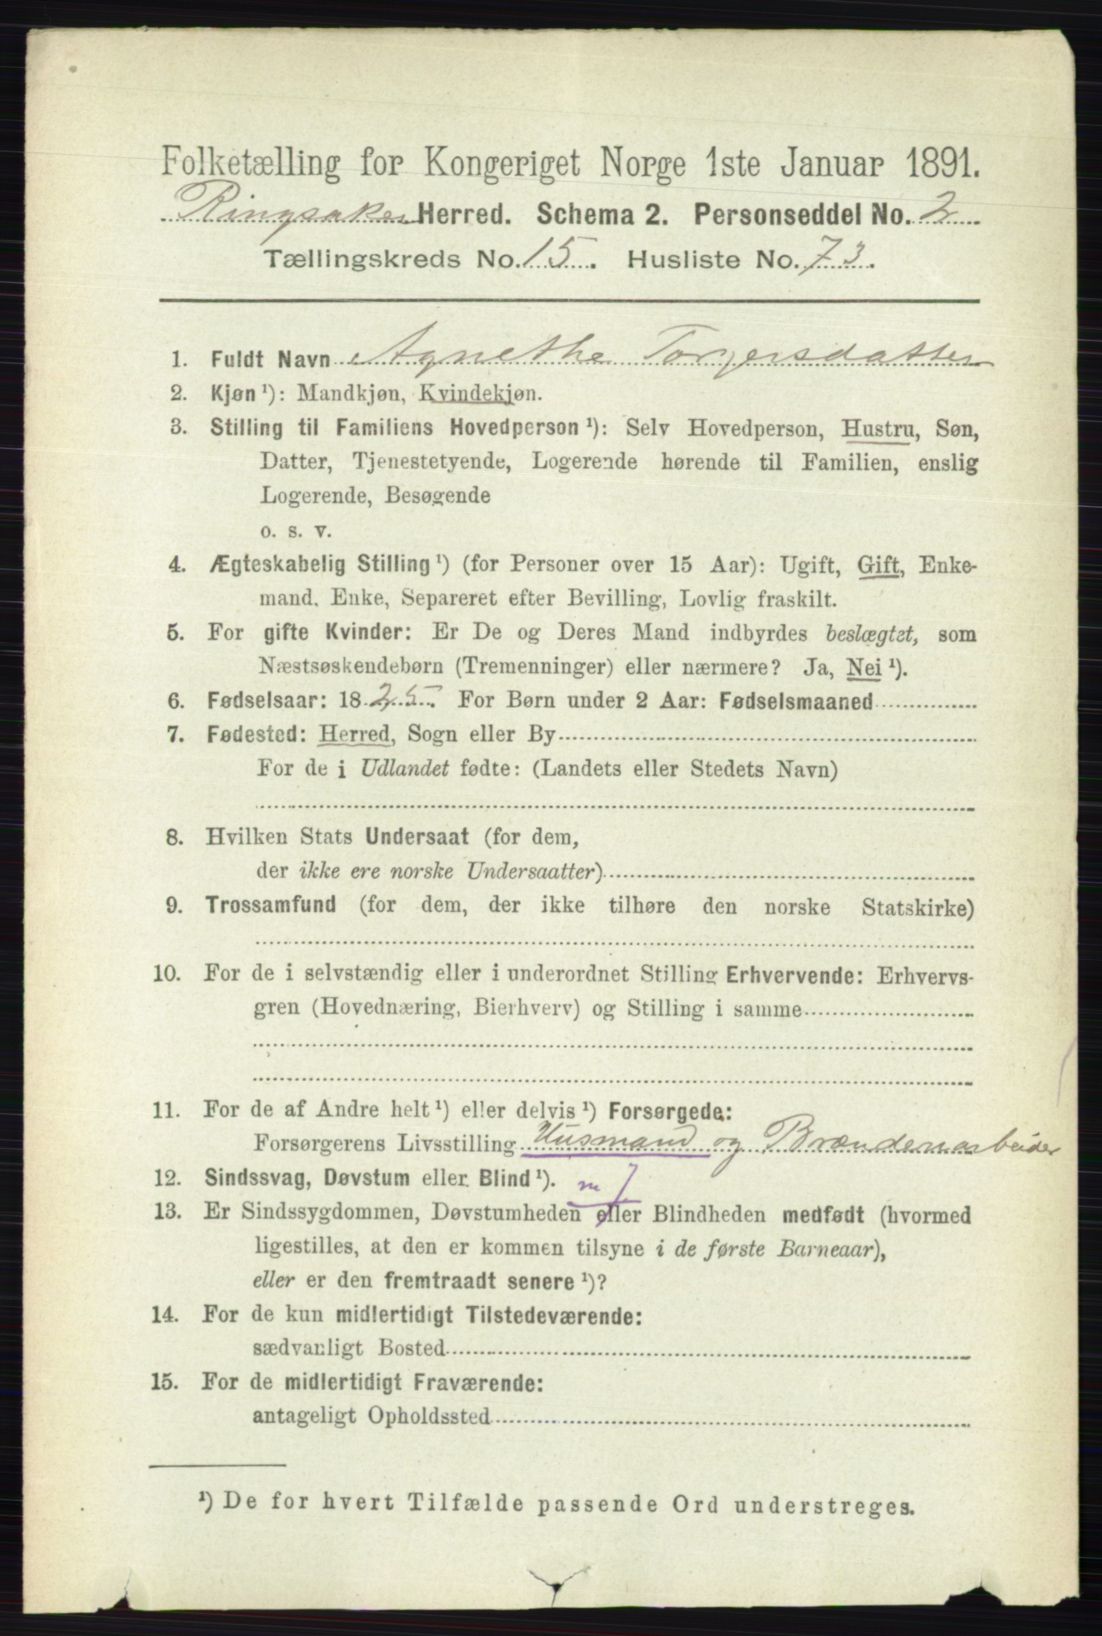 Folketælling for Kongeriget Norge 1ste Januar 1891.
Ringsaker Herred. Schema 2. Personseddel No. 2
Tællingskreds No. 15. Husliste No. 73.
1. Fuldt Navn Agnethe Torgersdatter
2. Kjøn ¹): Mandkjøn, Kvindekjøn.
3. Stilling til Familiens Hovedperson ¹): Selv Hovedperson, Hustru, Søn,
Datter, Tjenestetyende, Logerende hørende til Familien, enslig
Logerende, Besøgende
o. s. v.
4. Ægteskabelig Stilling ¹) (for Personer over 15 Aar): Ugift, Gift, Enke-
mand. Enke, Separeret efter Bevilling, Lovlig fraskilt.
5. For gifte Kvinder: Er De og Deres Mand indbyrdes beslægtet, som
Næstsøskendebørn (Tremenninger) eller nærmere? Ja, Nei ¹).
6. Fødselsaar: 1825. For Børn under 2 Aar: Fødselsmaaned
7. Fødested: Herred, Sogn eller By
For de i Udlandet fødte: (Landets eller Stedets Navn)
8. Hvilken Stats Undersaat (for dem,
der ikke ere norske Undersaatter)
9. Trossamfund (for dem, der ikke tilhøre den norske Statskirke)
10. For de i selvstændig eller i underordnet Stilling Erhvervende: Erhvervs-
gren (Hovednæring, Bierhverv) og Stilling i samme
11. For de af Andre helt ¹) eller delvis ¹) Forsørgede:
Forsørgerens Livsstilling Husmand og Brændenarbeider
12. Sindssvag, Døvstum eller Blind ¹).
13. Er Sindssygdommen, Døvstumheden eller Blindheden medfødt (hvormed
ligestilles, at den er kommen tilsyne i de første Barneaar),
eller er den fremtraadt senere ¹)?
14. For de kun midlertidigt Tilstedeværende:
sædvanligt Bosted
15. For de midlertidigt Fraværende:
antageligt Opholdssted
¹) De for hvert Tilfælde passende Ord understreges.